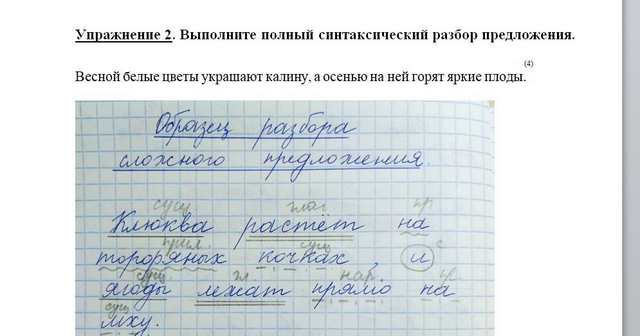 Упражнение 2. Выполните полный синтаксический разбор предложения.
(4)
Весной белые цветы украшают калину, а осенью на ней горят яркие плоды.
Образец разбора
сложного предложения.
сущ. глаг. пр.
Клюква растёт на
прил. сущ. с
тороряных кочках, и
сущ. гл. нар. пр.
ягоды лежат прямо на
сущ.
мху.